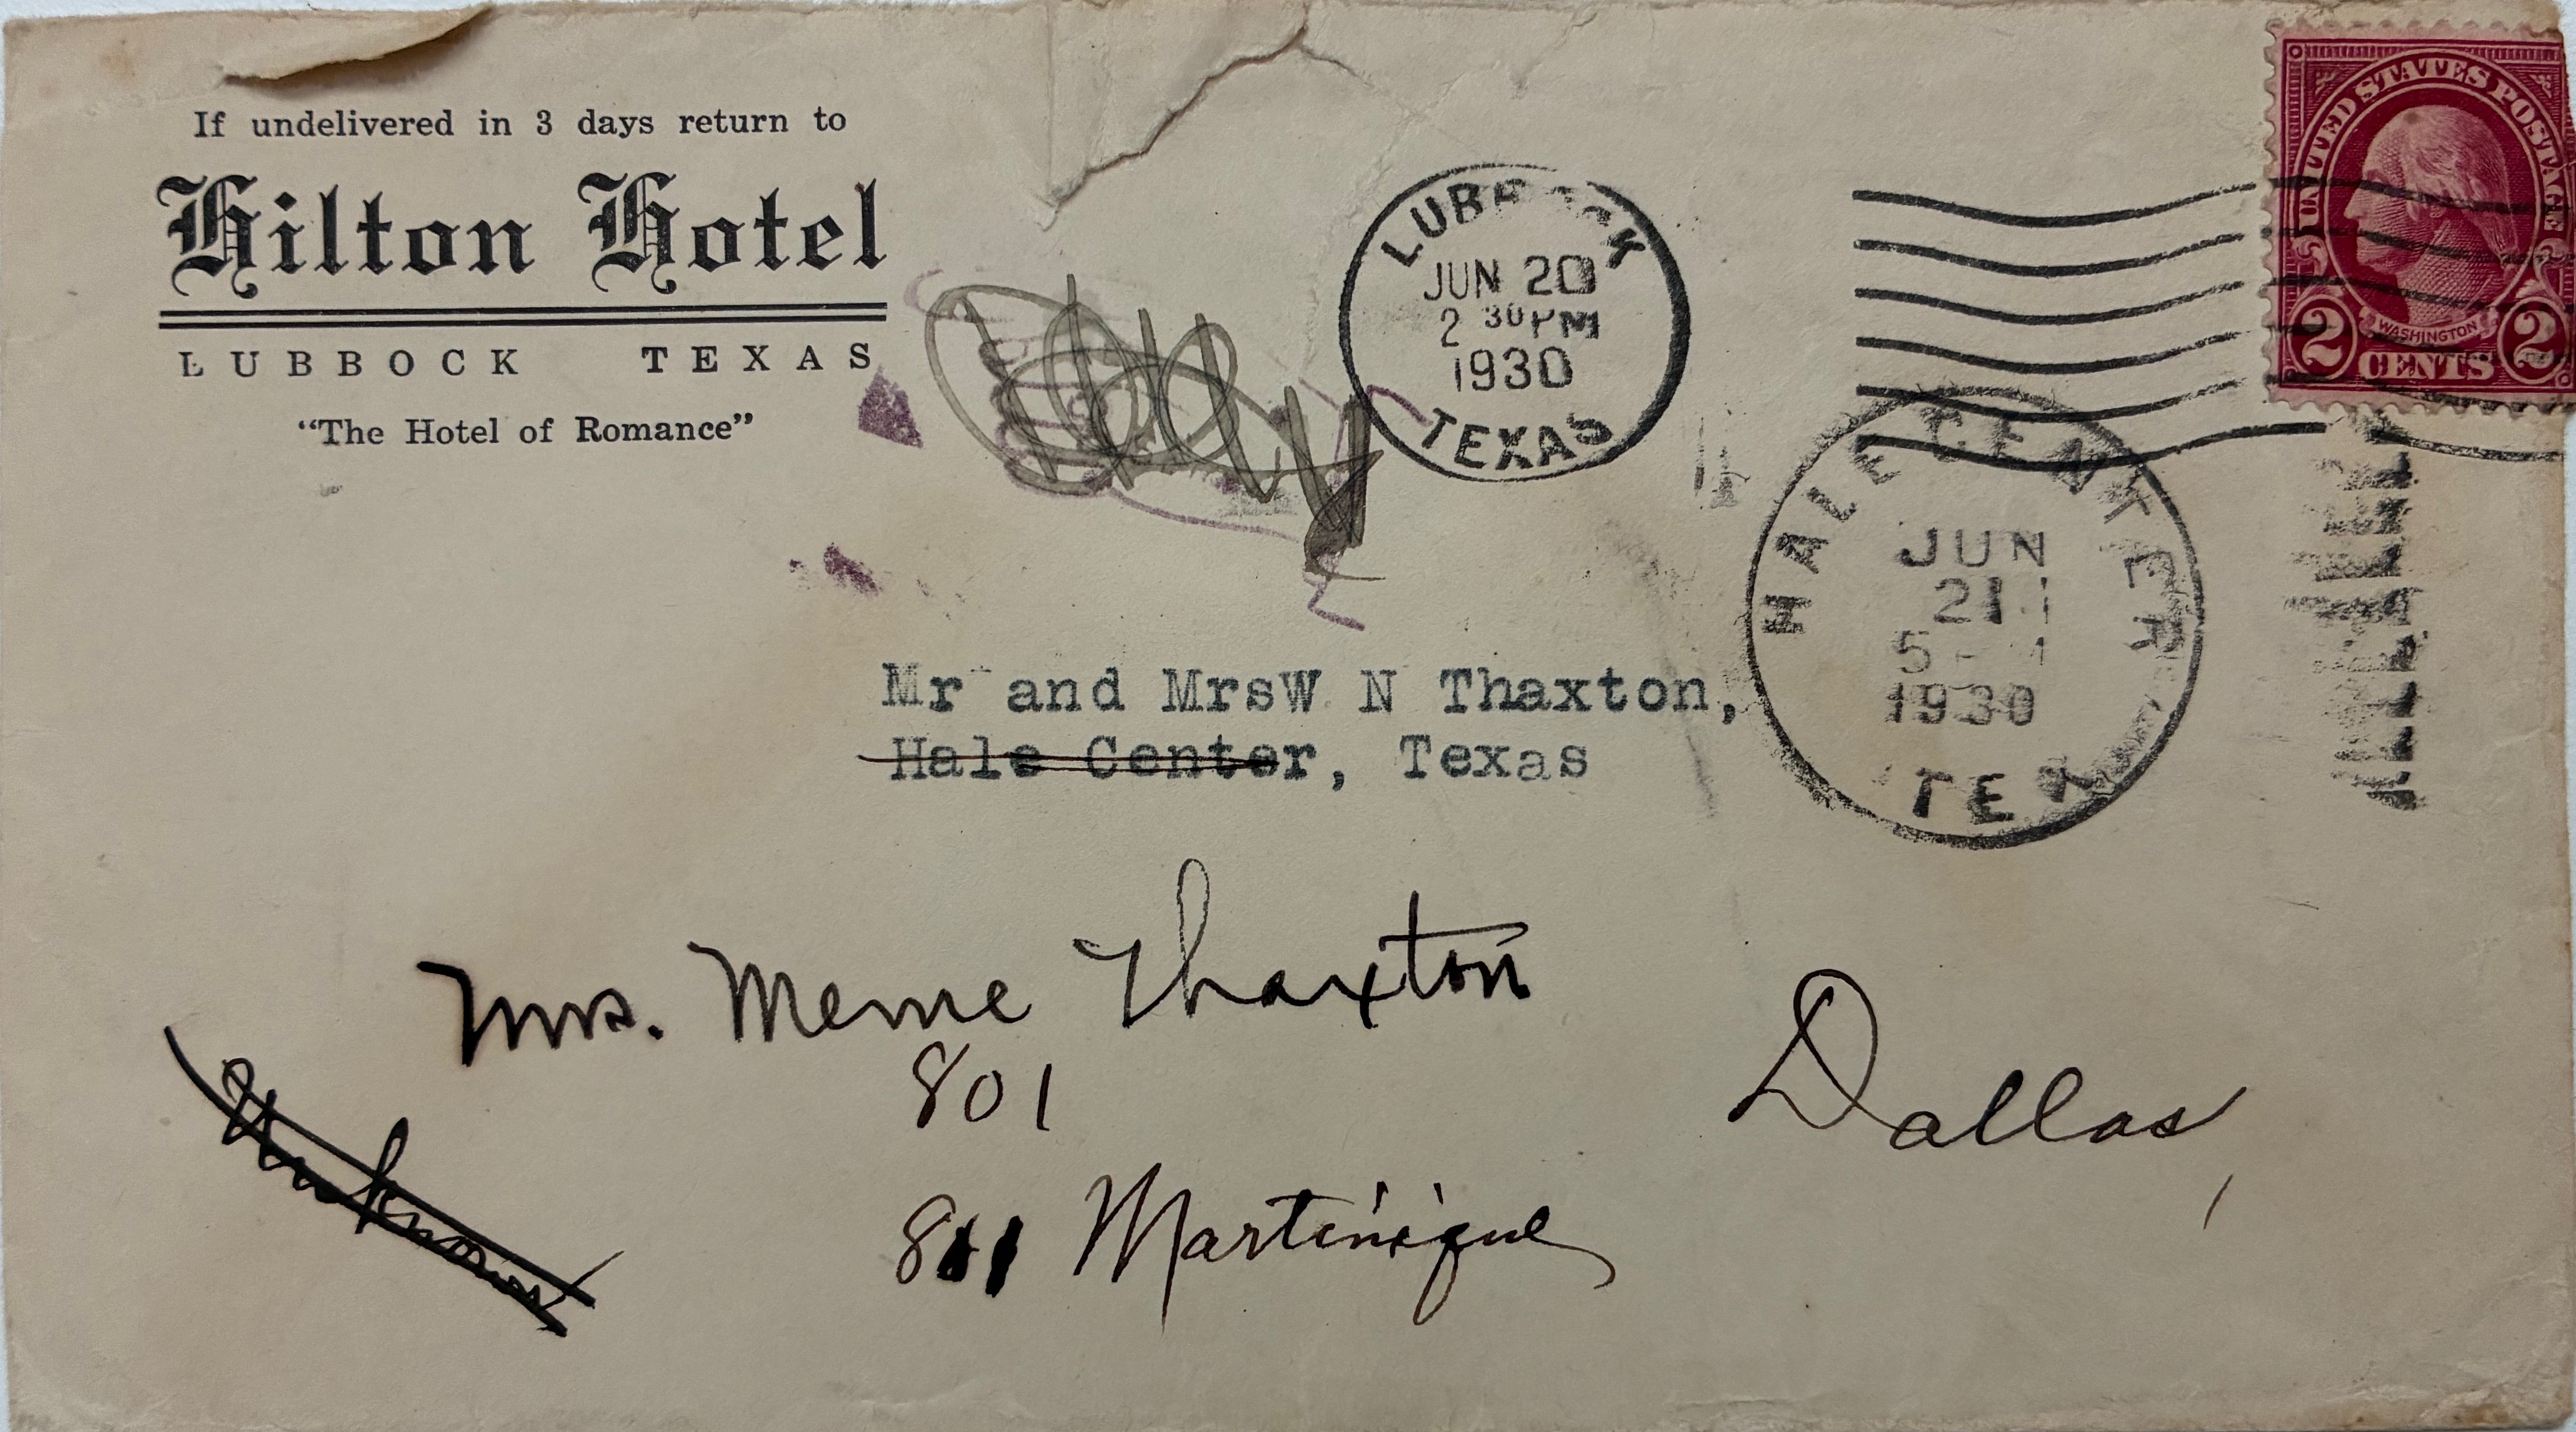 If undelivered in 3 days return to
Hilton Hotel
LUBBOCK TEXAS
"The Hotel of Romance"
LUBBOCK
JUN 20
2 30 PM
1930
TEXAS
UNITED STATES POSTAGE
WASHINGTON
2 CENTS 2
HALE CENTER
JUN
21
5
1930
TEX
Mr and MrsW N Thaxton,
Hale Center, Texas
Mrs. Meme Thaxton
801
811 Martinique
Dallas,
Unknown